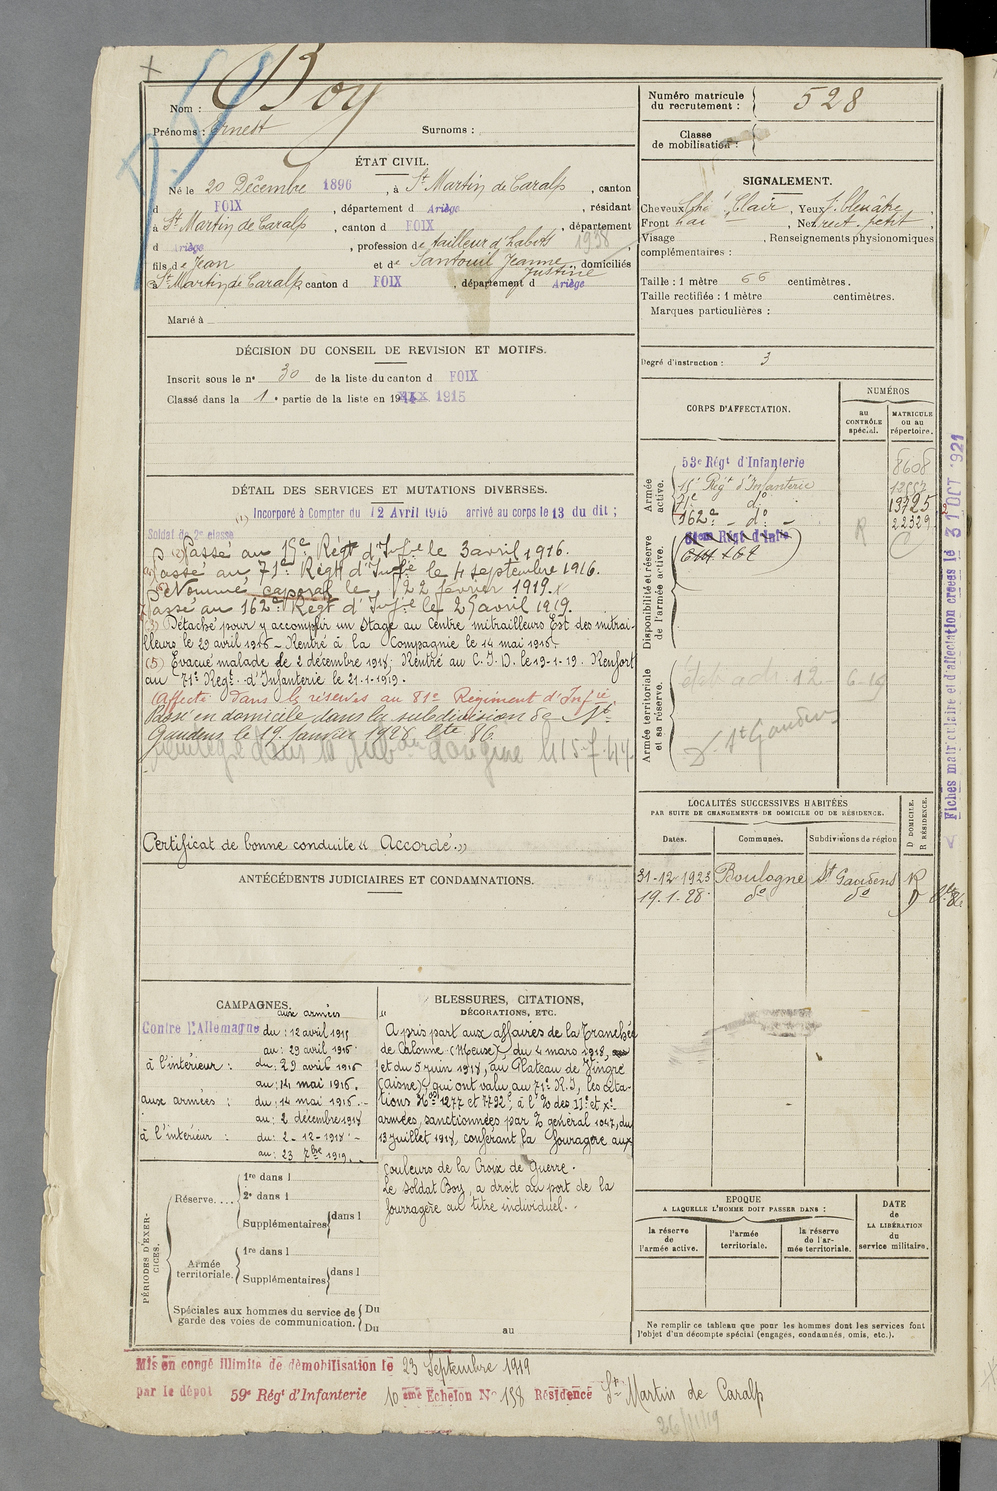 Nom : Boy
Prénoms : Ernest Surnoms :
ÉTAT CIVIL.
Né le 20 Décembre 1896, à St Martin de Caralp, canton
d FOIX, département d Ariège, résidant
à St Martin de Caralp, canton d FOIX, département
d Ariège, profession de tailleur d'habits 1938
fils de Jean et de Santouil Jeanne Justine, domiciliés
à St Martin de Caralp canton d FOIX, département d Ariège
Marié à
DÉCISION DU CONSEIL DE REVISION ET MOTIFS.
Inscrit sous le n° 30 de la liste du canton d FOIX
Classé dans la 1e partie de la liste en 19 1915
DÉTAIL DES SERVICES ET MUTATIONS DIVERSES.
(1) Incorporé à Compter du 12 Avril 1915 arrivé au corps le 13 du dit ;
Soldat de 2e classe
Passé au 15e Régt d'Infie le 3 avril 1916.
Passé au 71e Régt d'Infie le 4 septembre 1916.
Nommé caporal le 22 février 1919.
Passé au 162e Régt d'Infie le 29 avril 1919.
(3) Détaché pour y accomplir un stage au Centre mitrailleurs Est des mitrai-
lleurs le 29 avril 1918 - Rentré à la Compagnie le 14 mai 1918.
(5) Evacué malade le 2 décembre 1918; Rentré au C. I. D. le 19-1-19. Renfort
au 71e Régt d'Infanterie le 21.1.1919.
Affecté dans la réserve au 81e Régiment d'Infie
Passé en domicile dans la subdivision de St
Gaudens le 19 janvier 1928 lte 86
dans la Subon d'origine le 15-7-44.
Certificat de bonne conduite « Accordé. »
ANTÉCÉDENTS JUDICIAIRES ET CONDAMNATIONS.
CAMPAGNES.
aux armées
Contre l'Allemagne du : 12 avril 1915
au : 29 avril 1918
à l'intérieur : du : 29 avril 1918
au : 14 mai 1918.
aux armées : du : 14 mai 1918. -
au : 2 décembre 1918
à l'intérieur : du : 2 - 12 - 1918 -
au : 23 7bre 1919. -
BLESSURES, CITATIONS,
DÉCORATIONS, ETC.
A pris part aux affaires de la Tranchée
de Calonne (Meuse) du 4 mars 1918,
et du 5 juin 1918, au Plateau de Vingré
(Aisne) qui ont valu au 71e R.I, les cita-
tions Nos 1277 et 7792, à l'O des IIe et Xe
armées, sanctionnées par O général 1047, du
13 juillet 1918, conférant la fouragère aux
couleurs de la Croix de Guerre.
Le soldat Boy, a droit au port de la
fourragère au titre individuel.
PÉRIODES D'EXER-
CICES.
Réserve....
1re dans l
2e dans l
Supplémentaires dans l
Armée
territoriale.
1re dans l
Supplémentaires dans l
Spéciales aux hommes du service de
garde des voies de communication.
Du
Du au
Mis en congé illimité de démobilisation le 23 Septembre 1919
par le dépôt 59e Régt d'Infanterie 10ème Echelon N° 158 Résidence St Martin de Caralp
26/11/19
Numéro matricule
du recrutement : 528
Classe
de mobilisation :
SIGNALEMENT.
Cheveux Clair, Yeux bleuâtre,
Front Nez rect. petit,
Visage , Renseignements physionomiques
complémentaires :
Taille : 1 mètre 66 centimètres.
Taille rectifiée : 1 mètre centimètres.
Marques particulières :
Degré d'instruction : 3
CORPS D'AFFECTATION.
NUMÉROS
au
CONTRÔLE
spécial.
MATRICULE
ou au
répertoire.
Armée
active.
53e Régt d'Infanterie 8608
15e Régt d'Infanterie
71e do 13725
162e - do - 22329
Disponibilité et réserve
de l'armée active.
81eme Régt d'Infie R C
Armée territoriale
et sa réserve.
12-6-19
St Gaudens
LOCALITÉS SUCCESSIVES HABITÉES
PAR SUITE DE CHANGEMENTS DE DOMICILE OU DE RÉSIDENCE.
Dates. Communes. Subdivisions de région
D DOMICILE.
R RÉSIDENCE.
31-12-1923 Boulogne St Gaudens R
19.1.28. do do D
EPOQUE
A LAQUELLE L'HOMME DOIT PASSER DANS :
la réserve
de
l'armée active.
l'armée
territoriale.
la réserve
de l'ar-
mée territoriale.
DATE
de
LA LIBÉRATION
du
service militaire.
Ne remplir ce tableau que pour les hommes dont les services font
l'objet d'un décompte spécial (engagés, condamnés, omis, etc.).
Fiches matriculaire et d'affectation créées le 31 OCT 1921